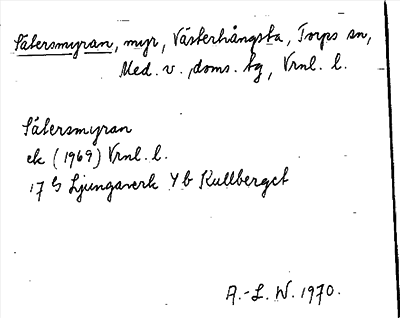 Sätersmyran, myr, Västerhångsta, Torps sn,
Med. v. doms. tg, Vrnl. l.
Sätersmyran
ek (1969) Vrnl. l.
17 G Ljungaverk 4 b Kullberget
A.-L. W. 1970.